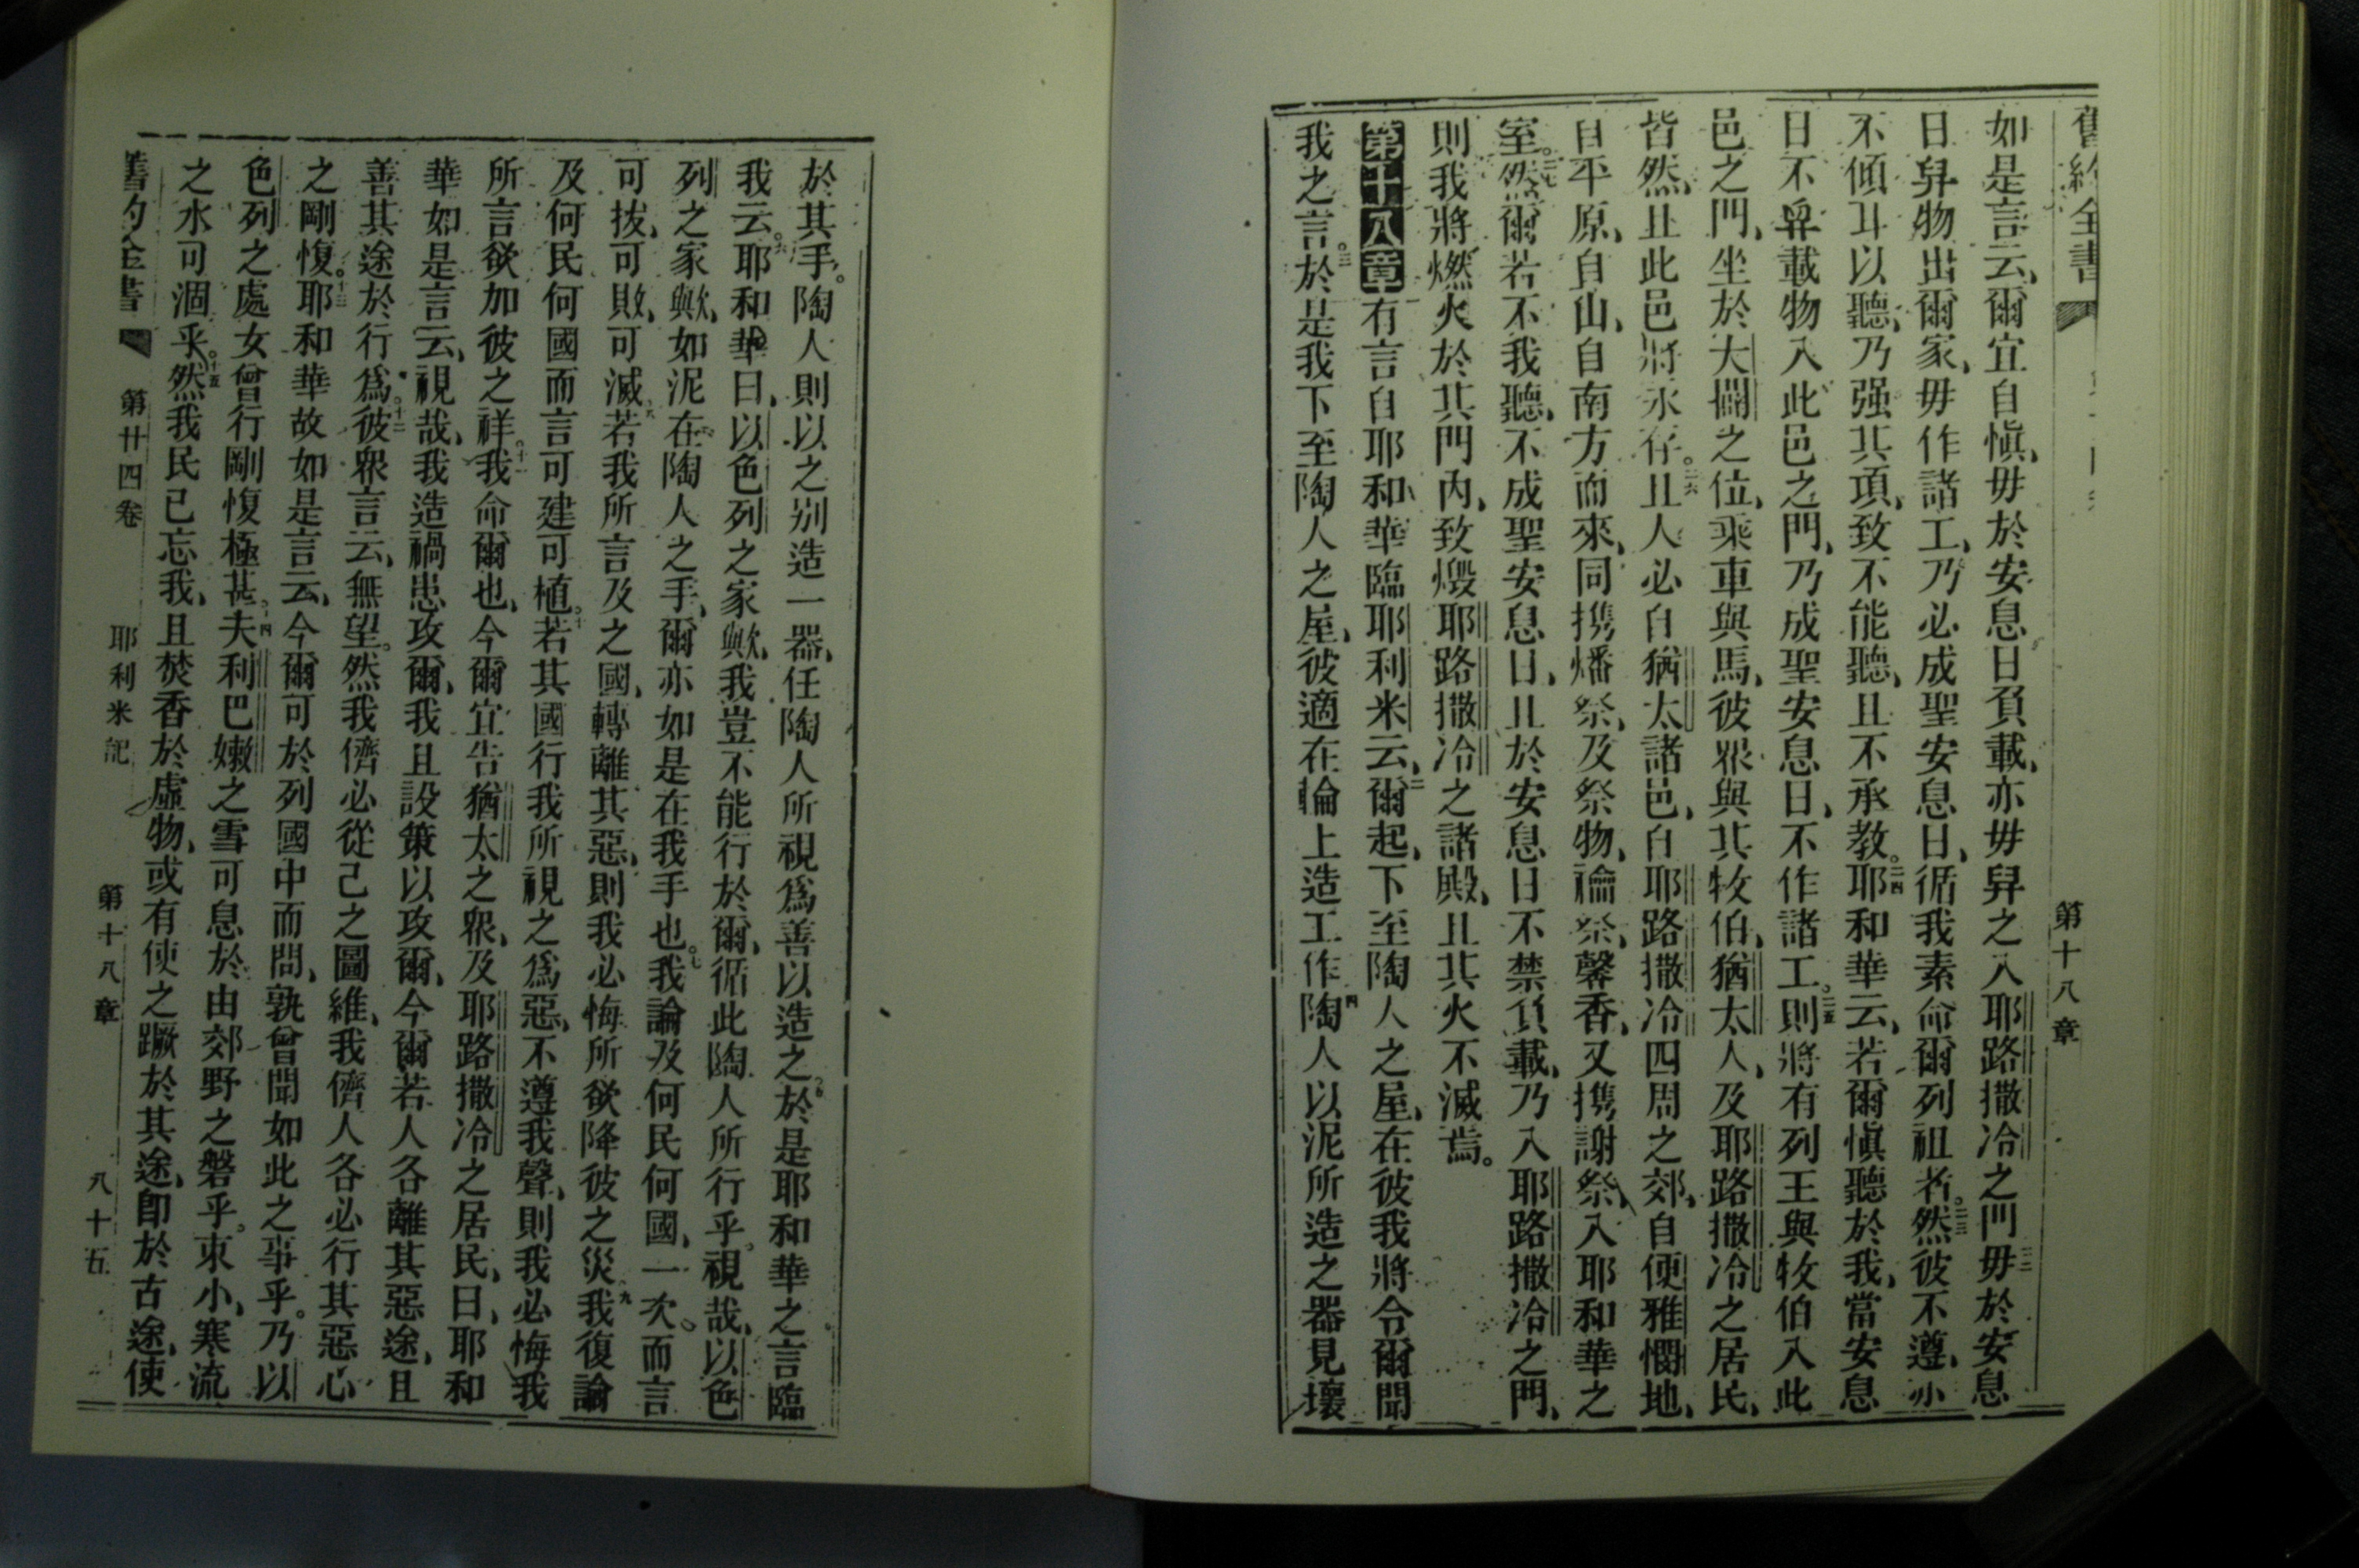 舊約全書
第十八章
如是言云、爾宜自愼、毋於安息日負載、亦毋舁之入耶路撒冷之門二二毋於安息
日舁物出爾家、毋作諸工、乃必成聖安息日、循我素命爾列祖者。二三然彼不遵、亦
不傾耳以聽、乃强其項、致不能聽、且不承教。二四耶和華云、若爾愼聽於我、當安息
日不舁載物入此邑之門、乃成聖安息日、不作諸工。二五則將有列王與牧伯入此
邑之門、坐於大闢之位、乘車與馬、彼衆與其牧伯、猶太人、及耶路撒冷之居民、
皆然、且此邑將永存。二六且人必自猶太諸邑、自耶路撒冷四周之郊、自便雅憫地、
自平原、自山、自南方而來、同携燔祭、及祭物、禴祭、馨香、又携謝祭、入耶和華之
室。二七然爾若不我聽、不成聖安息日、且於安息日不禁負載、乃入耶路撒冷之門、
則我將燃火於其門內、致燬耶路撒冷之諸殿、且其火不滅焉。
第十八章有言自耶和華臨耶利米云、二爾起、下至陶人之屋、在彼我將令爾聞
我之言。三於是我下至陶人之屋、彼適在輪上造工作四陶人以泥所造之器見壞
於其手。陶人則以之别造一器、任陶人所視爲善以造之、五於是耶和華之言臨
我云。六耶和華曰、以色列之家歟、我豈不能行於爾、循此陶人所行乎。視哉、以色
列之家歟、如泥在陶人之手、爾亦如是在我手也。七我論及何民何國、一次。而言
可拔、可敗、可滅、八若我所言及之國、轉離其惡、則我必悔所欲降彼之災、九我復論
及何民何國而言可建可植。十若其國行我所視之爲惡、不遵我聲、則我必悔我
所言欲加彼之祥。十一我命爾也、今爾宜告猶太之衆、及耶路撒冷之居民、曰、耶和
華如是言云、視哉、我造禍患攻爾、我且設策以攻爾、今爾若人各離其惡途、且
善其途於行爲。十二彼衆言云、無望。然我儕必從己之圖維、我儕人各必行其惡心
之剛愎。十三耶和華故如是言云、今爾可於列國中而問、孰曾聞如此之事乎。乃以
色列之處女曾行剛愎極甚。十四夫利巴嫩之雪可息於由郊野之磐乎。東小、寒流
之水可涸乎。十五然我民已忘我、且焚香於虛物、或有使之蹶於其途、卽於古途、使
舊約全書 第廿四卷 耶利米記 第十八章 八十五